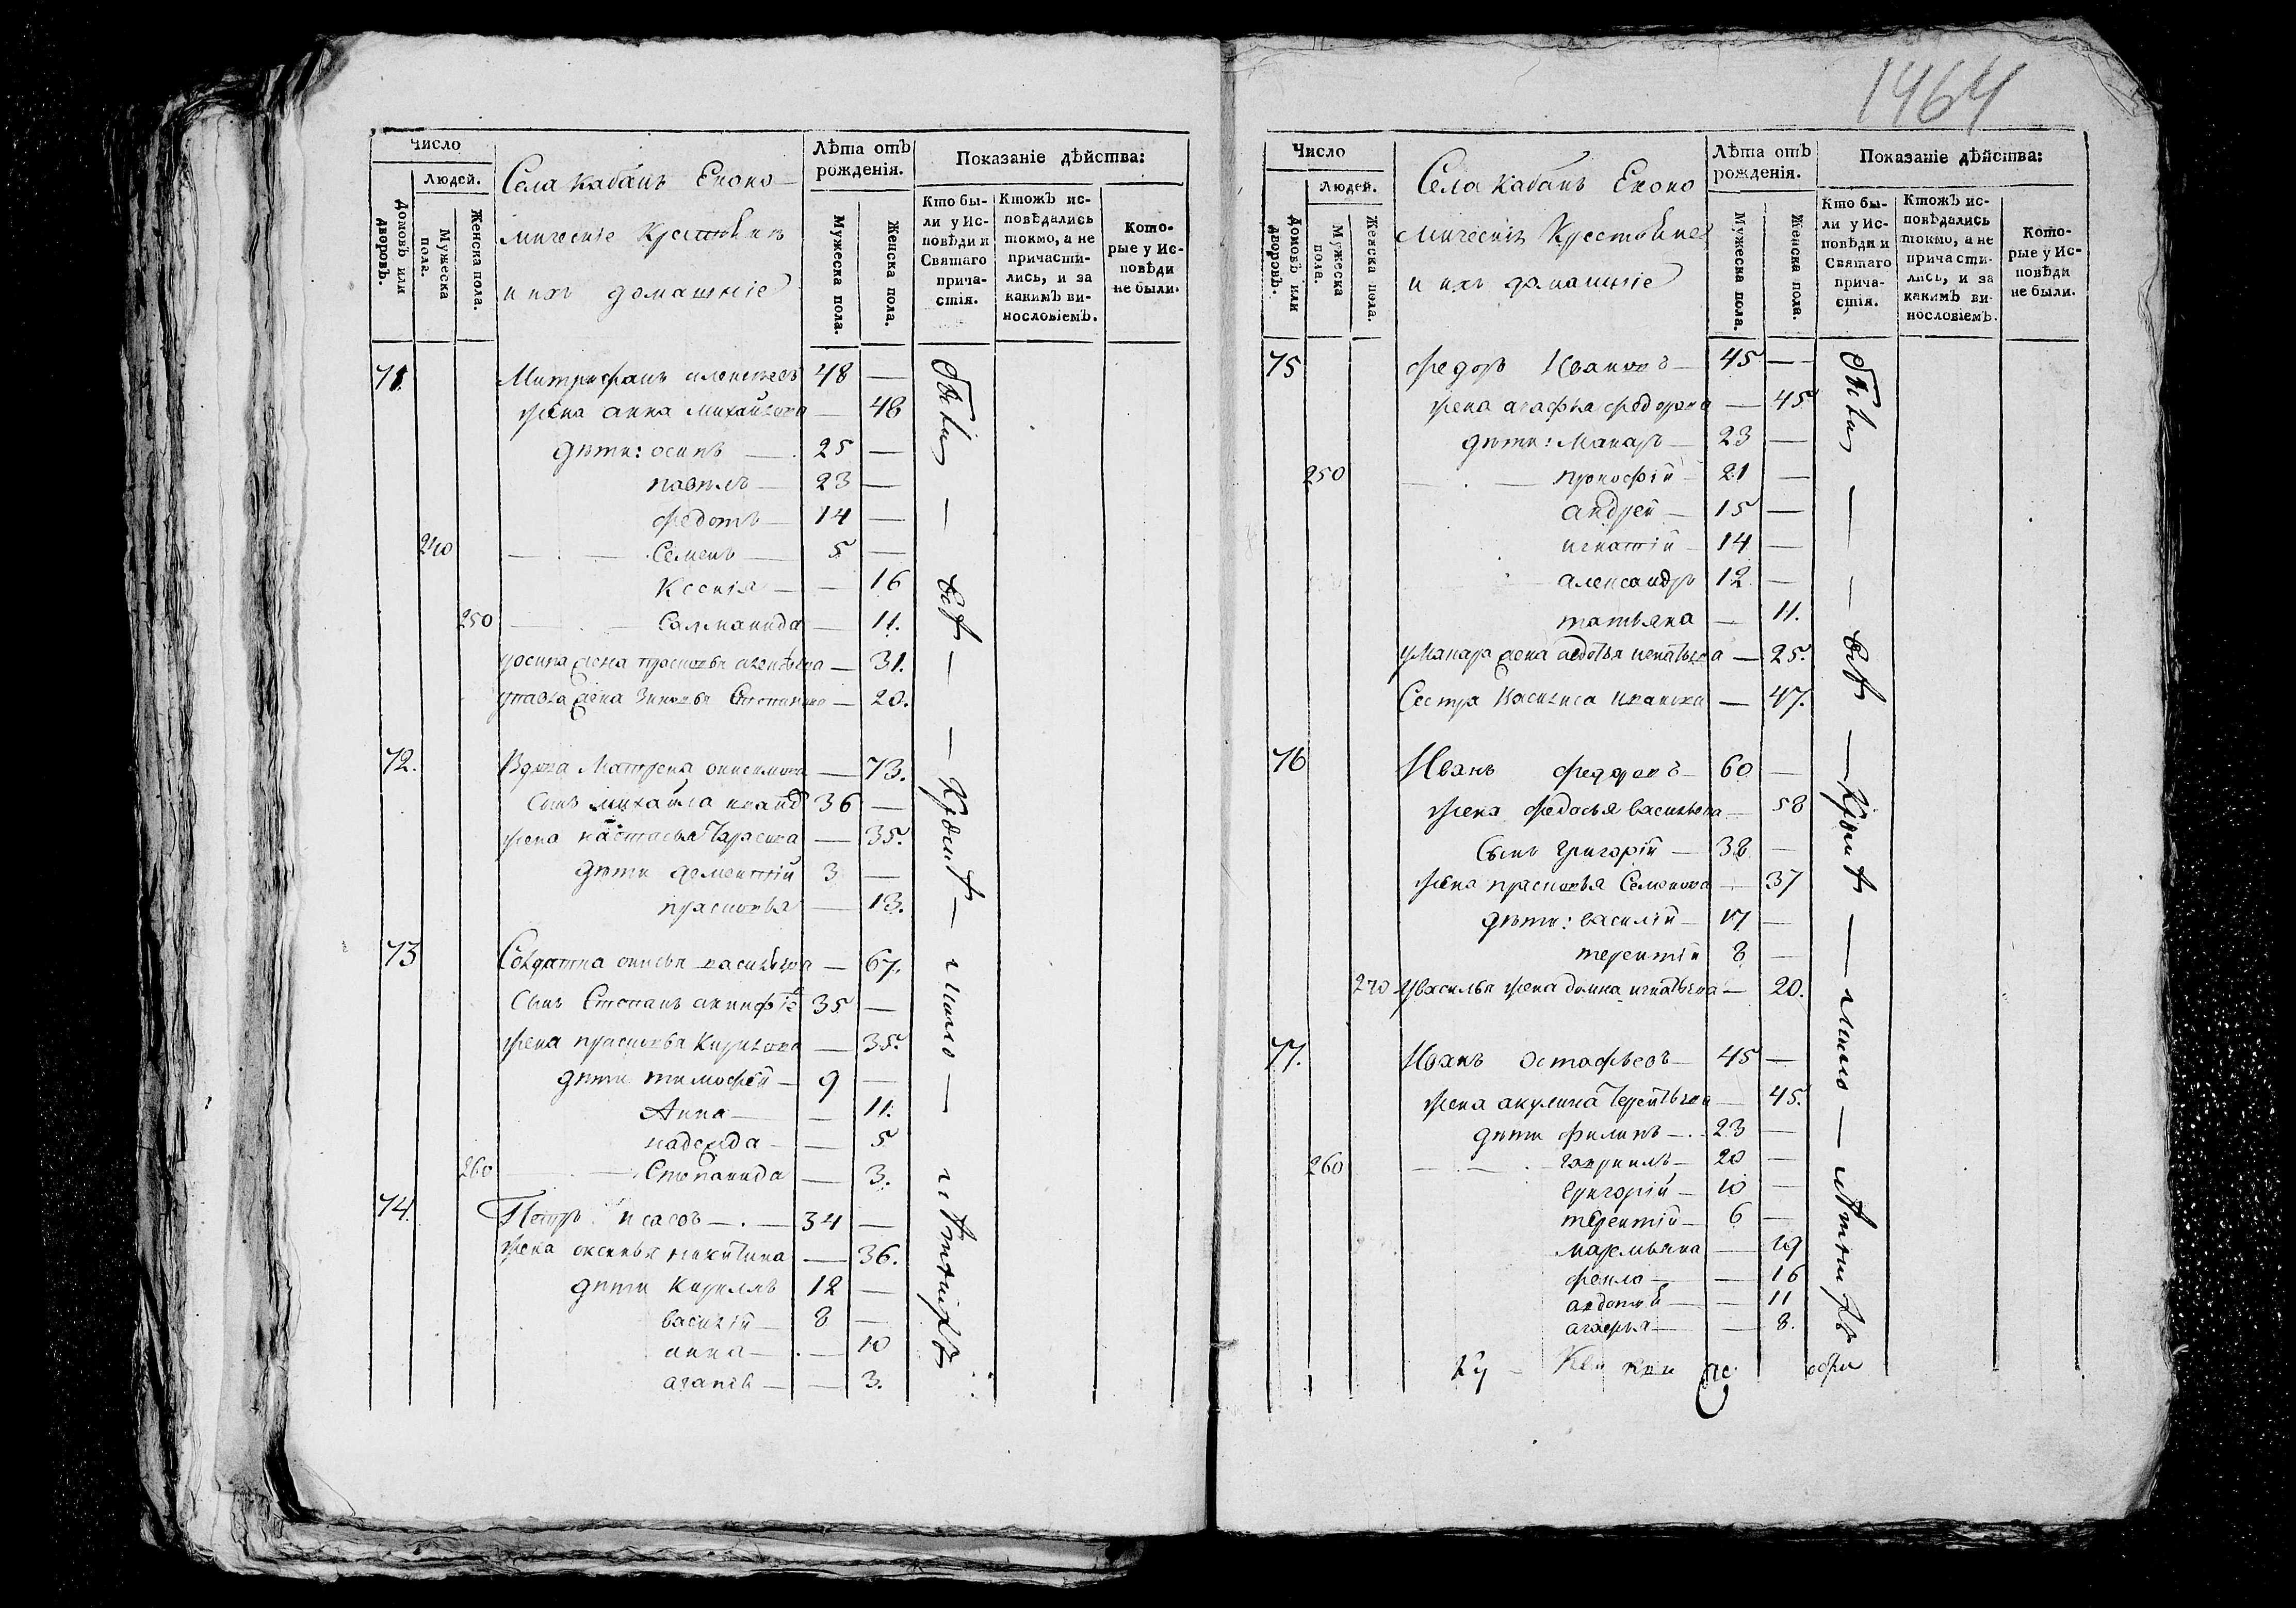 Число
Людей.
Домовъ или дворовъ.
Мужеска пола.
Женска пола.
Села Кабанъ Еконо-
мическіе Крестьянъ
и ихъ домашніе
Лѣта отъ рожденія.
Мужеска пола.
Женска пола.
Показаніе дѣйства:
Кто бы-
ли у Ис-
повѣди и
Святаго
прича-
стія.
Ктожъ ис-
повѣдались
токмо, а не
причасти-
лись, и за
какимъ ви-
нословіемъ.
Кото-
рые у Ис-
повѣди
не были.
71 Митрофанъ алексеевъ 48 —
жена анна михайлова — 48
дѣти: осипъ — 25 —
павелъ — 23 —
федотъ — 14 —
240 Семенъ — 5 —
Ксенія — — 16
250 Саломанида — 11.
уосипа жена прасковья — 31.
упавла жена Зиновья Степанова — 20.
72. Вдова Матрена онисимова — 73.
Сынъ михайла 36 —
жена настасья Тарасова — 35.
дѣти дементій 3 —
прасковья — 13.
73 Солдатка васильева — 67.
Сынъ Степанъ 35 —
жена прасковья Кирилова — 35.
дѣти тимофей — 9 —
Анна — — 11.
надежда — — 5
260 Степанида — 3.
74. Петръ исаевъ — 34 —
жена оксинья никитина — 36.
дѣти Кирилъ 12 —
василій — 8 —
анна — — 10
агапья — — 3.
были — всѣ — Кромѣ — — лѣтнихъ
1464
Число
Людей.
Домовъ или дворовъ.
Мужеска пола.
Женска пола.
Села Кабанъ Еконо
мическіе Крестьяне
и ихъ домашніе
Лѣта отъ рожденія.
Мужеска пола.
Женска пола.
Показаніе дѣйства:
Кто бы-
ли у Ис-
повѣди и
Святаго
прича-
стія.
Ктожъ ис-
повѣдались
токмо, а не
прича сти-
лись, и за
какимъ ви-
нословіемъ.
Кото-
рые у Ис-
повѣди
не были.
75 федоръ Ивановъ — 45 —
жена агафья федорова — 45
дѣти: Макаръ — 23 —
250 прокофій — 21 —
андрей — 15 —
игнатій — 14 —
александръ 12 —
татьяна — 11.
умакара жена авдотья игнатьева — 25.
Сестра Василиса иванова — 47.
76 Иванъ федоровъ — 60 —
жена федосья васильева — 58
Сынъ григорій — 38 —
жена прасковья Семенова — 37
дѣти: василій — 17 —
терентій 8 —
270 увасилья жена домна игнатьева — 20.
77. Иванъ Остафьевъ — 45 —
жена акулина Терентьева — 45.
дѣти филипъ — 23 —
260 гаврилъ — 20 —
григорій — 10 —
терентій — 6 —
маремьяна — 19
фекла — — 16
авдотья — — 11
агафья — — 8.
были — всѣ — Кромѣ — — лѣтнихъ